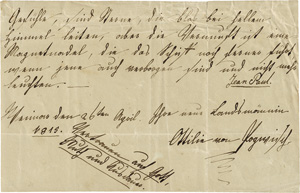 Gesichte, sind Sterne, die blos bei hellem
Himmel leiten, aber die Vernunft ist eine
Magnetnadel, die das Schiff noch ferner führt
wenn jene auch verborgen sind und nicht mehr
leuchten.
Jean Paul.
Weimar den 26ten April Ihre neue Landsmännin
Ottilie von Pogwisch
Vertrauen auf Gott.